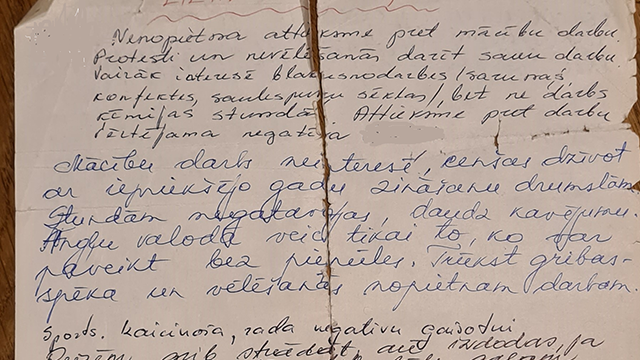 Nenopietna attieksme pret mācību darbu.
Protesti un nevēlēšanās darīt savu darbu.
Vairāk interesē blakusnodarbes /sarunas
konfektes, saulespuķu sēklas/, bet ne darbs
ķīmijas stundā. Attieksme pret darbu
vērtējama negatīva
Mācību darbs neinteresē, cenšas dzīvot
ar iepriekšējo gadu zināšanu drumslām
Stundām negatavojas, daudz kavējumu.
Angļu valodā veic tikai to, ko var
paveikt bez piepūles. Trūkst gribas-
spēka un vēlēšanās nopietnam darbam.
Sports. kaicinoša, rada negatīvu gaisotni
strādāt, arī izdodas, ja